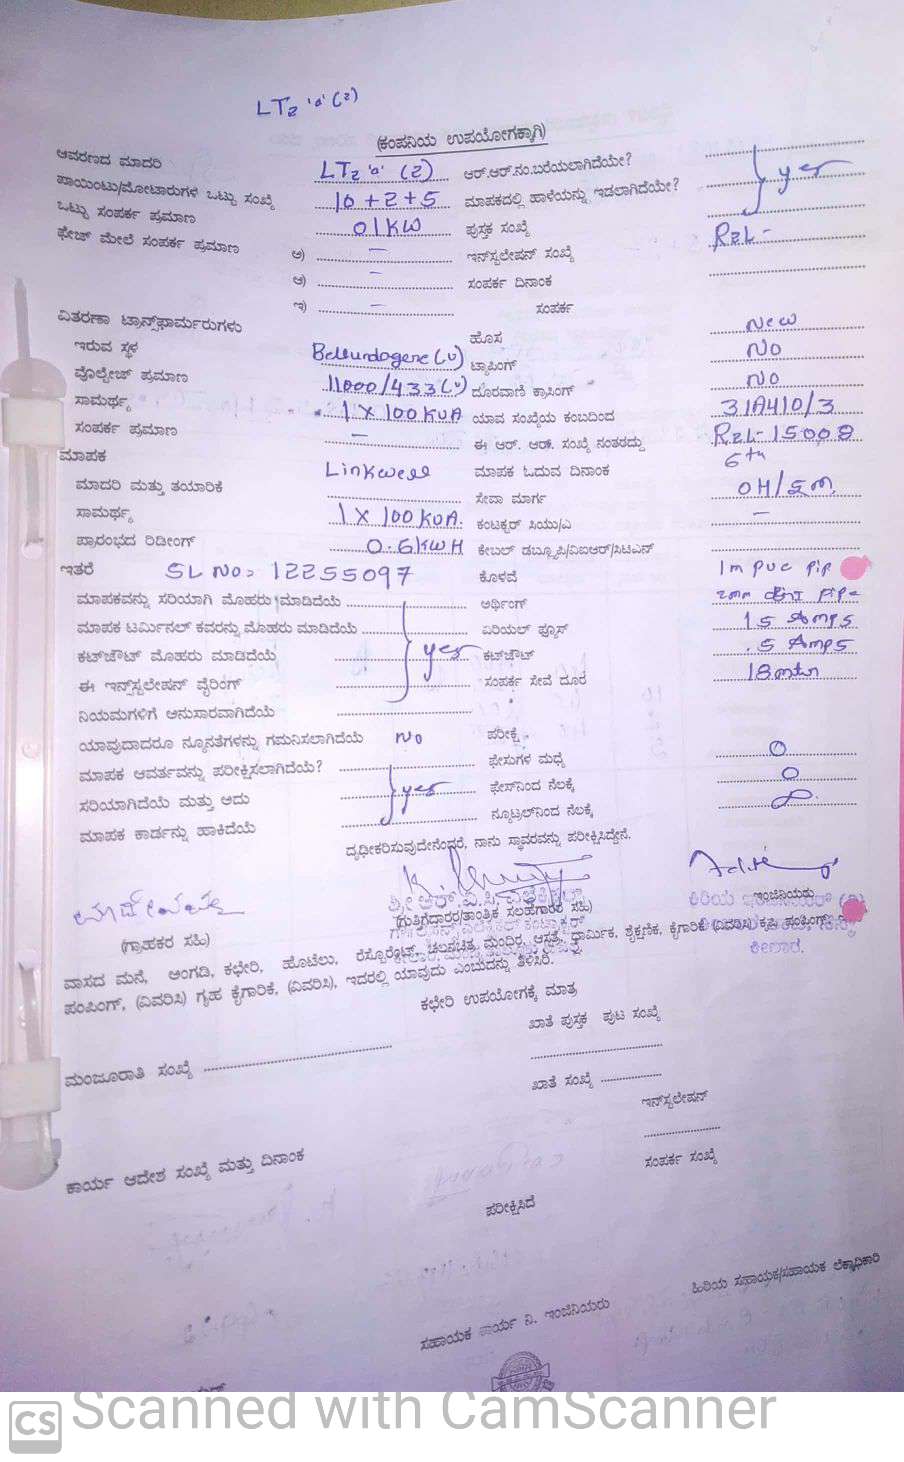 LT2 'a' (2)
(ಕಂಪನಿಯ ಉಪಯೋಗಕ್ಕಾಗಿ)
ಆವರಣದ ಮಾದರಿ LT2 'a' (2) ಆರ್.ಆರ್.ನಂ.ಬರೆಯಲಾಗಿದೆಯೇ?
ಪಾಯಿಂಟು/ಮೋಟಾರುಗಳ ಒಟ್ಟು ಸಂಖ್ಯೆ 10+2+5 ಮಾಪಕದಲ್ಲಿ ಹಾಳೆಯನ್ನು ಇಡಲಾಗಿದೆಯೇ? yes
ಒಟ್ಟು ಸಂಪರ್ಕ ಪ್ರಮಾಣ 01KW ಪುಸ್ತಕ ಸಂಖ್ಯೆ
ಫೇಜ್ ಮೇಲೆ ಸಂಪರ್ಕ ಪ್ರಮಾಣ ಅ) – ಇನ್‌ಸ್ಟಲೇಷನ್ ಸಂಖ್ಯೆ RZL-
ಆ) – ಸಂಪರ್ಕ ದಿನಾಂಕ
ಇ) – ಸಂಪರ್ಕ
ವಿತರಣಾ ಟ್ರಾನ್ಸ್‌ಫಾರ್ಮರುಗಳು ಹೊಸ New
ಇರುವ ಸ್ಥಳ (U) ಟ್ಯಾಪಿಂಗ್ NO
ವೋಲ್ಟೇಜ್ ಪ್ರಮಾಣ 11000/433(V) ದೂರವಾಣಿ ಕ್ರಾಸಿಂಗ್ NO
ಸಾಮರ್ಥ್ಯ 1 X 100 KVA ಯಾವ ಸಂಖ್ಯೆಯ ಕಂಬದಿಂದ 31A410/3
ಸಂಪರ್ಕ ಪ್ರಮಾಣ – ಈ ಆರ್. ಆರ್. ಸಂಖ್ಯೆ ನಂತರದ್ದು RZL-15008
ಮಾಪಕ ಮಾಪಕ ಓದುವ ದಿನಾಂಕ 6th
ಮಾದರಿ ಮತ್ತು ತಯಾರಿಕೆ Linkwell ಸೇವಾ ಮಾರ್ಗ OH/
ಸಾಮರ್ಥ್ಯ 1 X 100 KVA. ಕಂಟಕ್ಟರ್ ಸಿಯು/ಎ –
ಪ್ರಾರಂಭದ ರಿಡೀಂಗ್ 0.6KWH ಕೇಬಲ್ ಡಬ್ಲ್ಯೂಪಿ/ವಿಐಆರ್/ಸಿಟಿಎನ್
ಇತರೆ SL NO: 12255097 ಕೊಳವೆ 1m PVC Pip
ಮಾಪಕವನ್ನು ಸರಿಯಾಗಿ ಮೊಹರು ಮಾಡಿದೆಯೆ ಅರ್ಥಿಂಗ್
ಮಾಪಕ ಟರ್ಮಿನಲ್ ಕವರನ್ನು ಮೊಹರು ಮಾಡಿದೆಯೆ ಏರಿಯಲ್ ಫ್ಯೂಸ್ 15 Amps
ಕಟ್‌ಔಟ್ ಮೊಹರು ಮಾಡಿದೆಯೆ yes ಕಟ್‌ಔಟ್ .5 Amps
ಈ ಇನ್‌ಸ್ಟಲೇಷನ್ ವೈರಿಂಗ್ ಸಂಪರ್ಕ ಸೇವೆ ದೂರ 18mtr
ನಿಯಮಗಳಿಗೆ ಅನುಸಾರವಾಗಿದೆಯೆ
ಯಾವುದಾದರೂ ನ್ಯೂನತೆಗಳನ್ನು ಗಮನಿಸಲಾಗಿದೆಯೆ NO ಪರೀಕ್ಷೆ
ಮಾಪಕ ಆವರ್ತವನ್ನು ಪರೀಕ್ಷಿಸಲಾಗಿದೆಯೆ? ಫೇಸುಗಳ ಮಧ್ಯೆ 0
ಸರಿಯಾಗಿದೆಯೆ ಮತ್ತು ಅದು yes ಫೇಸ್‌ನಿಂದ ನೆಲಕ್ಕೆ 0
ಮಾಪಕ ಕಾರ್ಡನ್ನು ಹಾಕಿದೆಯೆ ನ್ಯೂಟ್ರಲ್‌ನಿಂದ ನೆಲಕ್ಕೆ
ದೃಢೀಕರಿಸುವುದೇನೆಂದರೆ, ನಾನು ಸ್ಥಾವರವನ್ನು ಪರೀಕ್ಷಿಸಿದ್ದೇನೆ.
(ಗ್ರಾಹಕರ ಸಹಿ) (ಗುತ್ತಿಗೆದಾರರ/ತಾಂತ್ರಿಕ ಸಲಹೆಗಾರರ ಸಹಿ) ಇಂಜಿನಿಯರು
ವಾಸದ ಮನೆ, ಅಂಗಡಿ, ಕಛೇರಿ, ಹೊಟೆಲು, ರೆಸ್ಟೊರೆಂಟ್, ಚಲನಚಿತ್ರ, ಮಂದಿರ, ಆಸ್ಪತ್ರೆ, ಧಾರ್ಮಿಕ, ಶೈಕ್ಷಣಿಕ, ಕೈಗಾರಿಕೆ (ವಿವರಿಸಿ) ಕೃಷಿ ಪಂಪಿಂಗ್
ಪಂಪಿಂಗ್, (ವಿವರಿಸಿ) ಗೃಹ ಕೈಗಾರಿಕೆ, (ವಿವರಿಸಿ), ಇದರಲ್ಲಿ ಯಾವುದು ಎಂಬುದನ್ನು ತಿಳಿಸಿರಿ.
ಕಛೇರಿ ಉಪಯೋಗಕ್ಕೆ ಮಾತ್ರ
ಖಾತೆ ಪುಸ್ತಕ ಪುಟ ಸಂಖ್ಯೆ
ಮಂಜೂರಾತಿ ಸಂಖ್ಯೆ
ಖಾತೆ ಸಂಖ್ಯೆ
ಇನ್‌ಸ್ಟಲೇಷನ್
ಕಾರ್ಯ ಆದೇಶ ಸಂಖ್ಯೆ ಮತ್ತು ದಿನಾಂಕ ಸಂಪರ್ಕ ಸಂಖ್ಯೆ
ಪರೀಕ್ಷಿಸಿದೆ
ಸಹಾಯಕ ಕಾರ್ಯ ನಿ. ಇಂಜಿನಿಯರು ಹಿರಿಯ ಸಹಾಯಕ/ಸಹಾಯಕ ಲೆಕ್ಕಾಧಿಕಾರಿ
CS Scanned with CamScanner